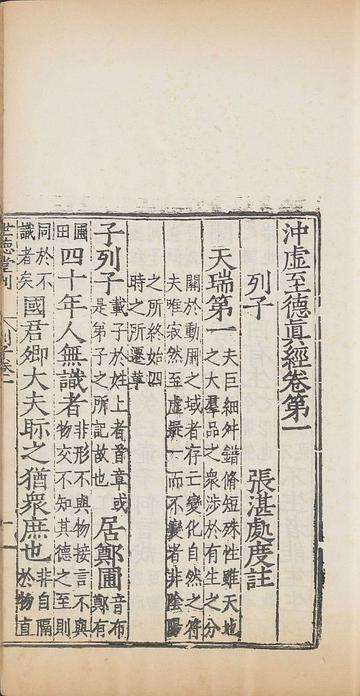 沖虛至德眞經卷第一
列子 張湛處度註
天瑞第一 夫巨細舛錯脩短殊性雖天地之大羣品之衆涉於有生之分
關於動用之域者存亡變化自然之符夫唯寂然至虛凝一而不變者非陰陽
之所終始四時之所遷革
子列子 載子於姓上者首章或是弟子之所記故也 居鄭圃 音布鄭有
圃田 四十年人無識者 非形不與物接言不與物交不知其德之至則
同於不識者矣 國君卿大夫眎之猶衆庶也 非自隔於物直
世德堂刊 列子卷一